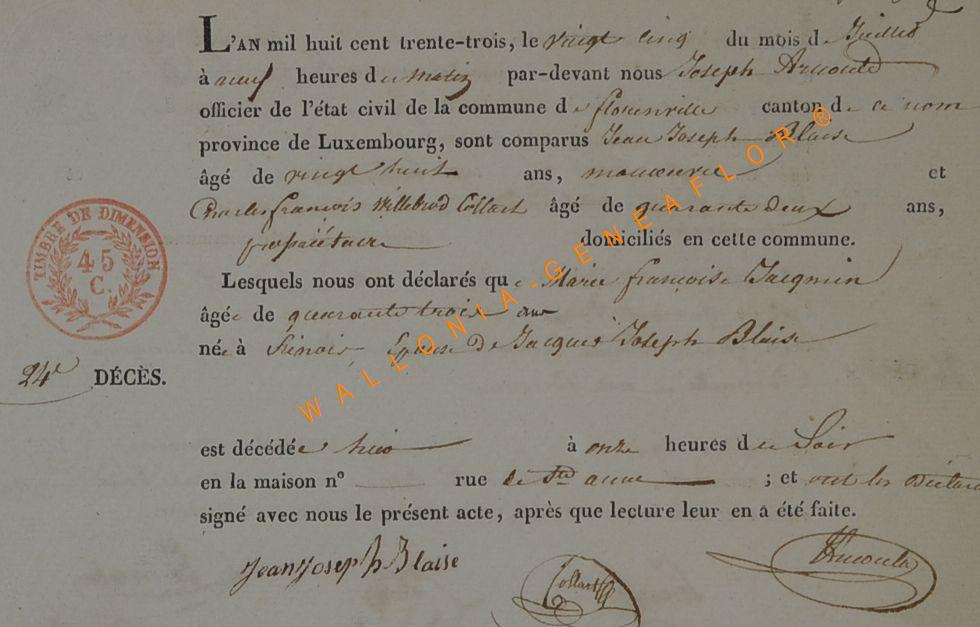 L'AN mil huit cent trente-trois, le vingt cinq du mois de Juillet
à neuf heures du matin par-devant nous Joseph Arnould
officier de l'état civil de la commune de florenville canton de ce nom
province de Luxembourg, sont comparus Jean Joseph Blaise
âgé de vingt huit ans, manoeuvre et
Charles françois Willebrod Collart âgé de quarante deux ans,
propriétaire domiciliés en cette commune.
Lesquels nous ont déclarés que Marie françoise Jacqmin
âgée de quarante trois ans
née à Epouse de Jacques Joseph Blaise
24e DÉCÈS.
est décédée hier à onze heures du Soir
en la maison nº rue de Ste anne ; et ont les déclarants
signé avec nous le présent acte, après que lecture leur en a été faite.
Jean Joseph Blaise Collart Arnould
TIMBRE DE DIMENSION
45
C.
WALLONIA.GENEAFLOR®